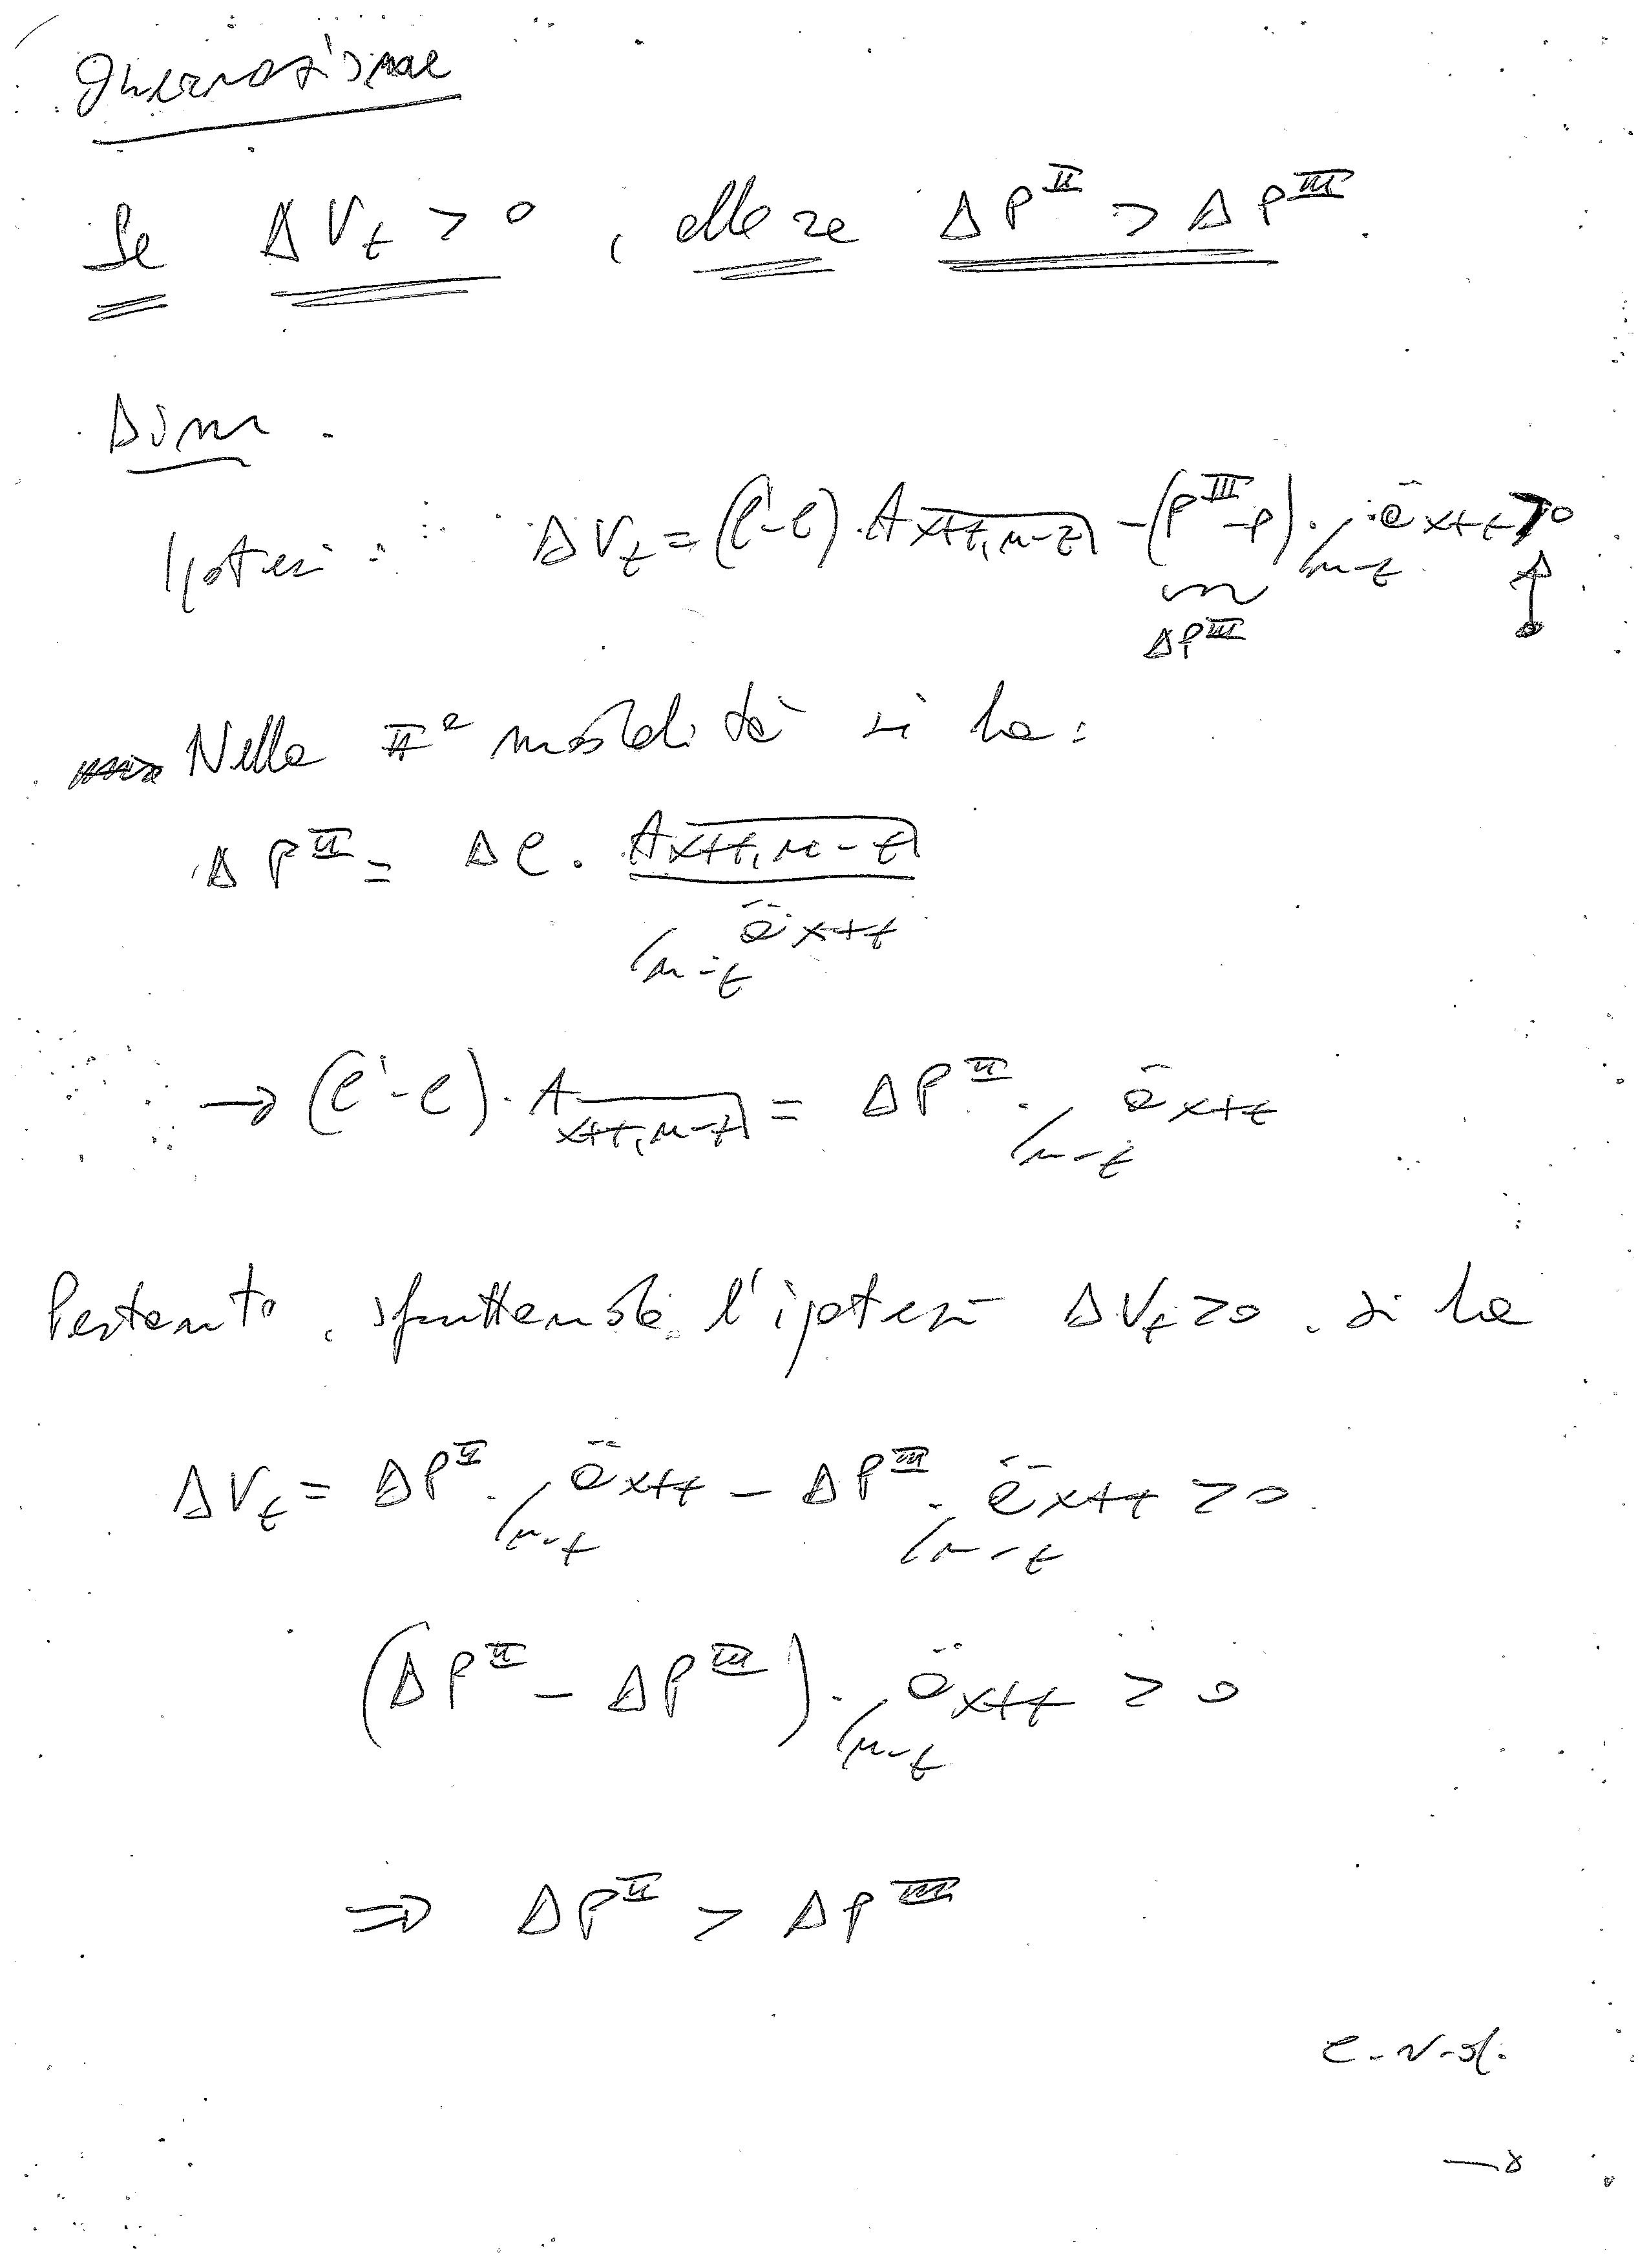 Osservazione
Se ΔV_t > 0, allora ΔP^II > ΔP^III.
Dim.
Ipotesi: ΔV_t = (C'-C)·A_{x+t, n-t⌉} - (P^III - P)·/n-t ä_{x+t} > 0
ΔP^III
Nella II^a modalità si ha:
ΔP^II = ΔC · A_{x+t, n-t⌉} / (/n-t ä_{x+t})
→ (C'-C)·A_{x+t, n-t⌉} = ΔP^II · /n-t ä_{x+t}
Pertanto, sfruttando l'ipotesi ΔV_t > 0, si ha
ΔV_t = ΔP^II · /n-t ä_{x+t} - ΔP^III · /n-t ä_{x+t} > 0
(ΔP^II - ΔP^III) · /n-t ä_{x+t} > 0
⇒ ΔP^II > ΔP^III
C.V.d.
→